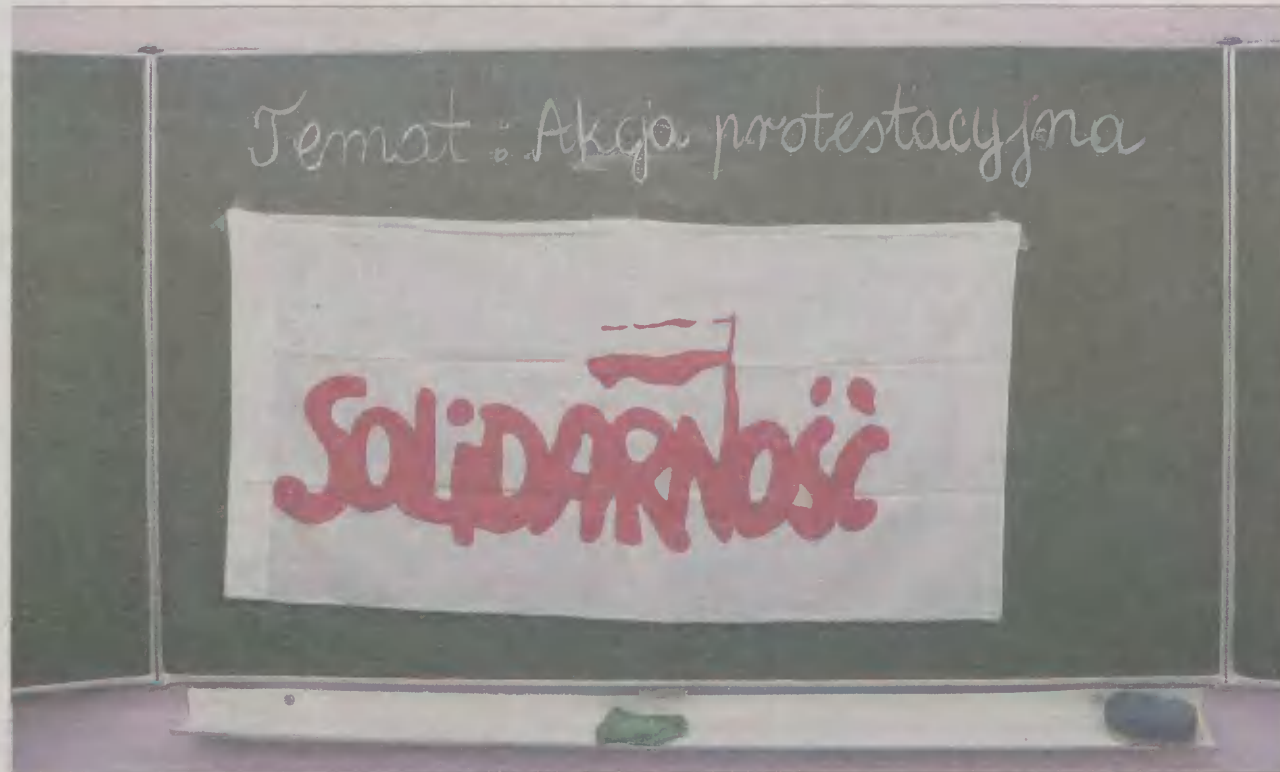 Temat: Akcja protestacyjna
SOLiDARNOŚĆ